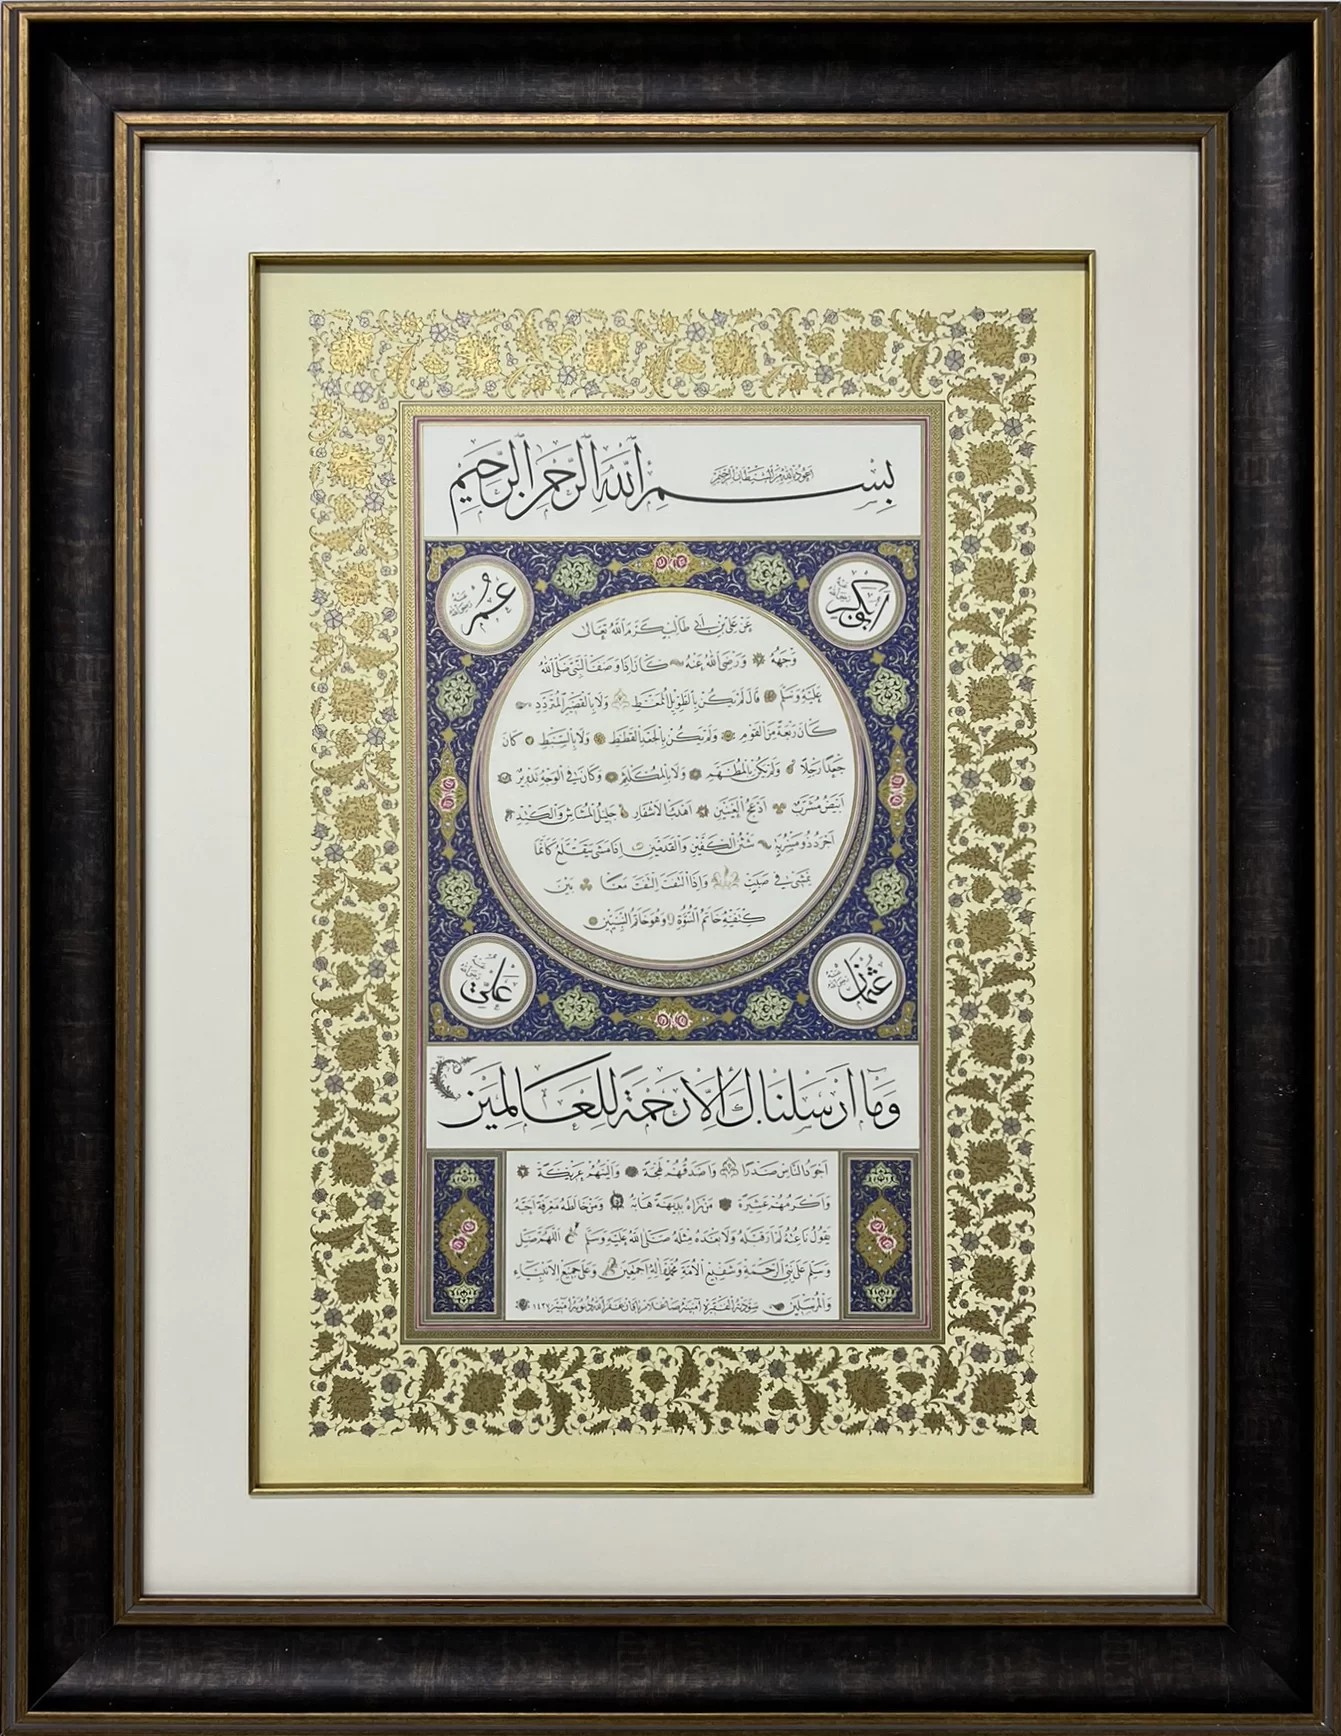 اعوذ بالله من الشيطان الرجيم
بِسْمِ اللهِ الرَّحْمٰنِ الرَّحِيمِ
ابوبكر رضي الله عنه
عُمَر رضي الله عنه
عَنْ عَلِيِّ بْنِ أَبِي طَالِبٍ كَرَّمَ اللهُ تَعَالَى
وَجْهَهُ وَرَضِيَ اللهُ عَنْهُ كَانَ إِذَا وَصَفَ النَّبِيَّ صَلَّى اللهُ
عَلَيْهِ وَسَلَّمَ قَالَ لَمْ يَكُنْ بِالطَّوِيلِ الْمُمَّغِطِ وَلَا بِالْقَصِيرِ الْمُتَرَدِّدِ
كَانَ رَبْعَةً مِنَ الْقَوْمِ وَلَمْ يَكُنْ بِالْجَعْدِ الْقَطَطِ وَلَا بِالسَّبِطِ كَانَ
جَعْدًا رَجِلًا وَلَمْ يَكُنْ بِالْمُطَهَّمِ وَلَا بِالْمُكَلْثَمِ وَكَانَ فِي الْوَجْهِ تَدْوِيرٌ
أَبْيَضُ مُشْرَبٌ أَدْعَجُ الْعَيْنَيْنِ أَهْدَبُ الْأَشْفَارِ جَلِيلُ الْمُشَاشِ وَالْكَتَدِ
أَجْرَدُ ذُو مَسْرُبَةٍ شَثْنُ الْكَفَّيْنِ وَالْقَدَمَيْنِ إِذَا مَشَى يَتَقَلَّعُ كَأَنَّمَا
يَمْشِي فِي صَبَبٍ وَإِذَا الْتَفَتَ الْتَفَتَ مَعًا بَيْنَ
كَتِفَيْهِ خَاتَمُ النُّبُوَّةِ وَهُوَ خَاتَمُ النَّبِيِّينَ
عُثْمَان رضي الله عنه
عَلِيّ رضي الله عنه
وَمَا أَرْسَلْنَاكَ إِلَّا رَحْمَةً لِلْعَالَمِينَ
أَجْوَدُ النَّاسِ صَدْرًا وَأَصْدَقُهُمْ لَهْجَةً وَأَلْيَنُهُمْ عَرِيكَةً
وَأَكْرَمُهُمْ عَشِيرَةً مَنْ رَآهُ بَدِيهَةً هَابَهُ وَمَنْ خَالَطَهُ مَعْرِفَةً أَحَبَّهُ
يَقُولُ نَاعِتُهُ لَمْ أَرَ قَبْلَهُ وَلَا بَعْدَهُ مِثْلَهُ صَلَّى اللهُ عَلَيْهِ وَسَلَّمَ اللَّهُمَّ صَلِّ
وَسَلِّمْ عَلَى نَبِيِّ الرَّحْمَةِ وَشَفِيعِ الْأُمَّةِ مُحَمَّدٍ وَآلِهِ أَجْمَعِينَ وَعَلَى جَمِيعِ الْأَنْبِيَاءِ
وَالْمُرْسَلِينَ سودته الفقيرة